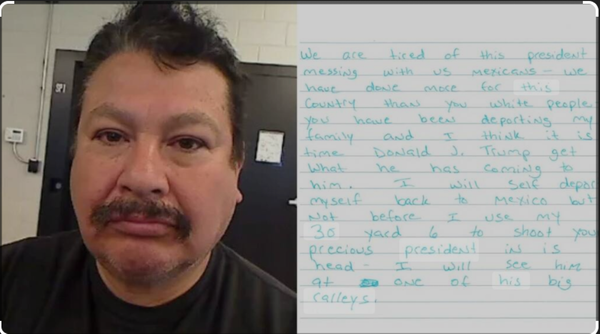 We are tired of this president
messing with us mexicans - we
have done more for this
Country than you white people
you have been deporting my
family and I think it is
time Donald J. Trump get
What he has coming to
him. I will self depor
myself back to Mexico but
Not before I use my
30 yard 6 to shoot you
precious president in is
head - I will see him
at one of his big
ralleys.